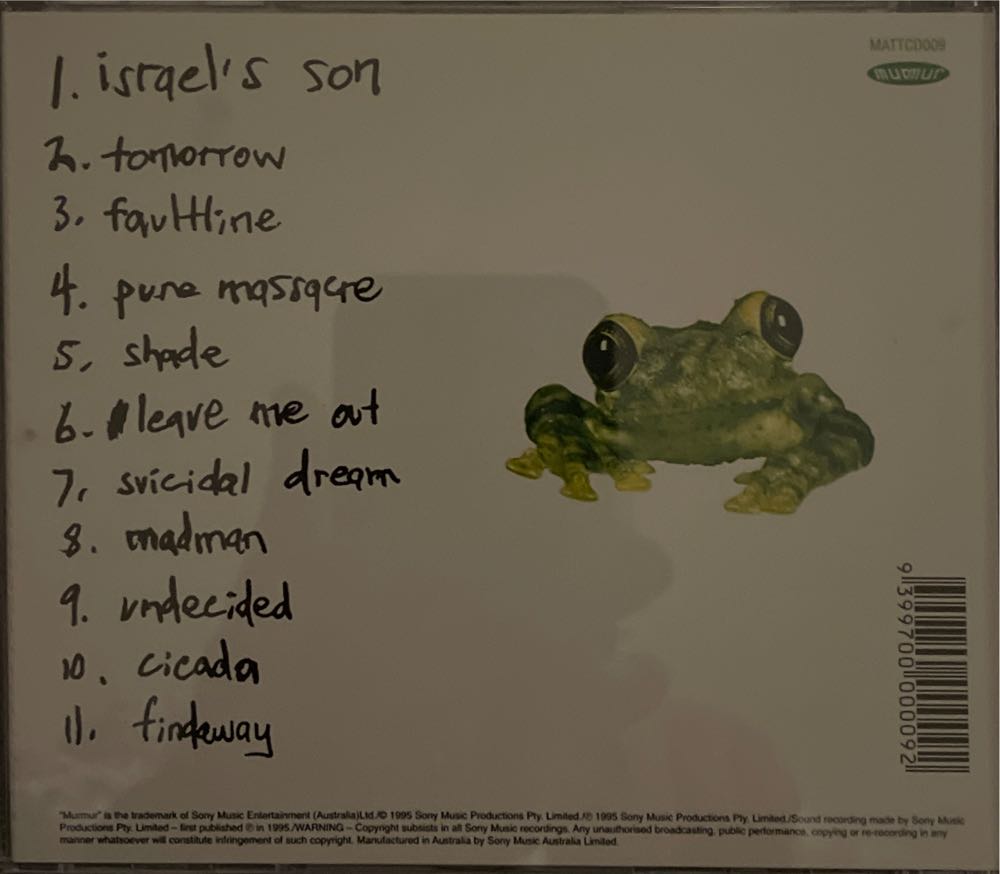 MATTCD009
murmur
1. israel's son
2. tomorrow
3. faultline
4. pure massacre
5. shade
6. leave me out
7. suicidal dream
8. madman
9. undecided
10. cicada
11. findaway
9 399700 000092
"Murmur" is the trademark of Sony Music Entertainment (Australia)Ltd./© 1995 Sony Music Productions Pty. Limited./℗ 1995 Sony Music Productions Pty. Limited./Sound recording made by Sony Music
Productions Pty. Limited – first published ℗ in 1995./WARNING – Copyright subsists in all Sony Music recordings. Any unauthorised broadcasting, public performance, copying or re-recording in any
manner whatsoever will constitute infringement of such copyright. Manufactured in Australia by Sony Music Australia Limited.